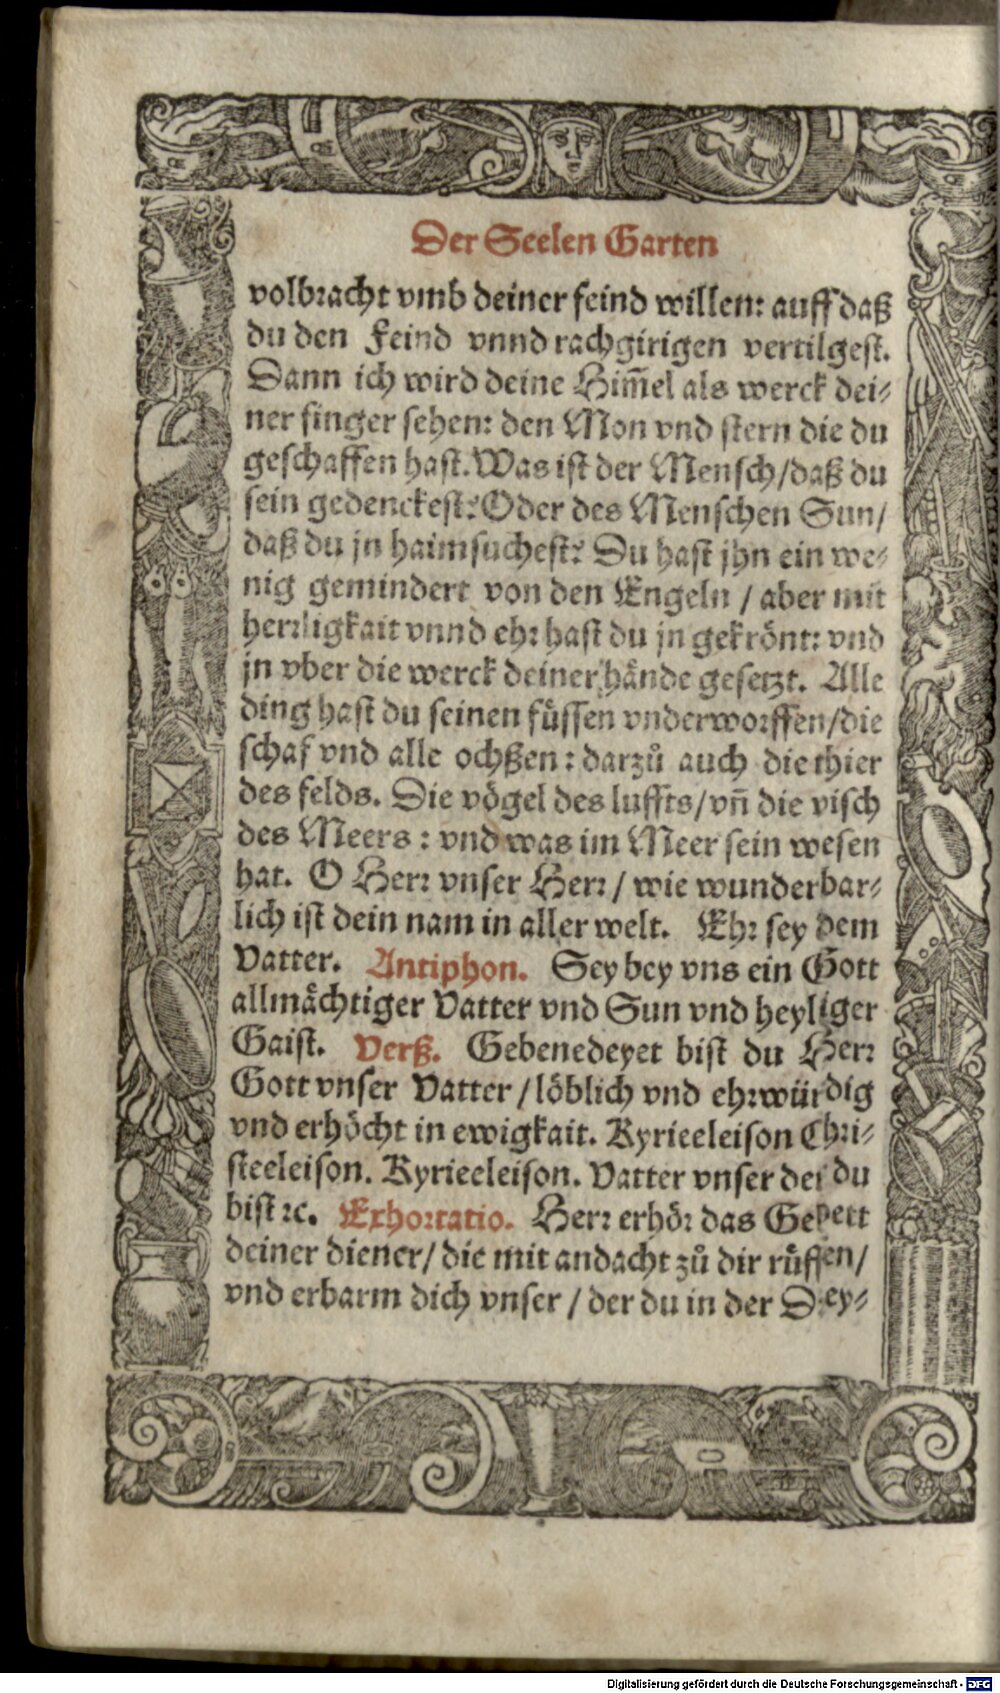 Der Seelen Garten
volbracht vmb deiner feind willen: auff daß
du den Feind vnnd rachgirigen vertilgest.
Dann ich wird deine Him̃el als werck dei⸗
ner finger sehen: den Mon vnd stern die du
geschaffen hast. Was ist der Mensch/daß du
sein gedenckest? Oder des Menschen Sun/
daß du jn haimsuchest? Du hast jhn ein we⸗
nig gemindert von den Engeln / aber mit
herrligkait vnnd ehr hast du jn gekrönt: vnd
jn vber die werck deiner hände gesetzt. Alle
ding hast du seinen füssen vnderworffen/die
schaf vnd alle ochßen: darzů auch die thier
des felds. Die vögel des luffts/vñ die visch
des Meers: vnd was im Meer sein wesen
hat. O Herr vnser Herr / wie wunderbar⸗
lich ist dein nam in aller welt. Ehr sey dem
Vatter. Antiphon. Sey bey vns ein Gott
allmächtiger Vatter vnd Sun vnd heyliger
Gaist. Verß. Gebenedeyet bist du Herr
Gott vnser Vatter / löblich vnd ehrwürdig
vnd erhöcht in ewigkait. Kyrieeleison Chri⸗
steeleison. Kyrieeleison. Vatter vnser der du
bist ꝛc. Exhortatio. Herr erhör das Gepett
deiner diener/ die mit andacht zů dir rüffen/
vnd erbarm dich vnser / der du in der Drey⸗
Digitalisierung gefördert durch die Deutsche Forschungsgemeinschaft - DFG